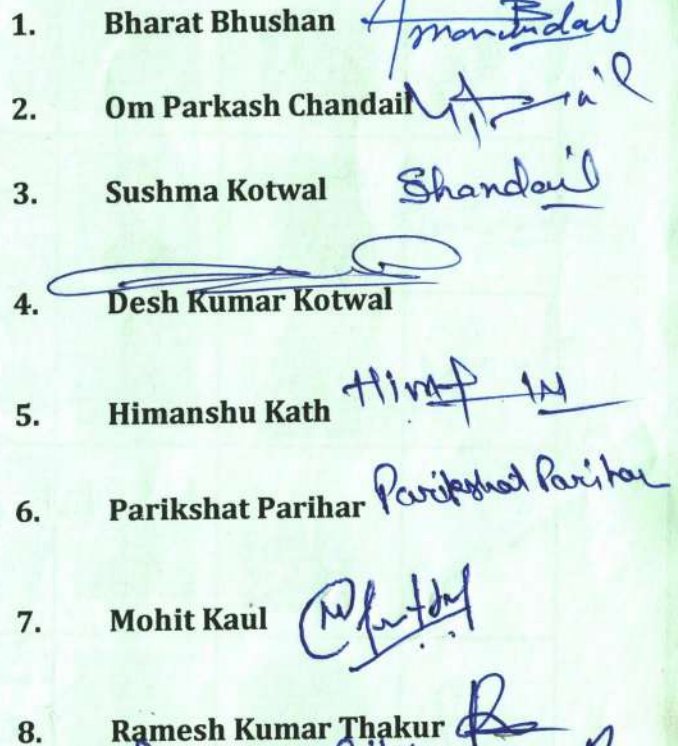 1. Bharat Bhushan
2. Om Parkash Chandail
3. Sushma Kotwal Shandail
4. Desh Kumar Kotwal
5. Himanshu Kath
6. Parikshat Parihar Parikshat Parihar
7. Mohit Kaul
8. Ramesh Kumar Thakur